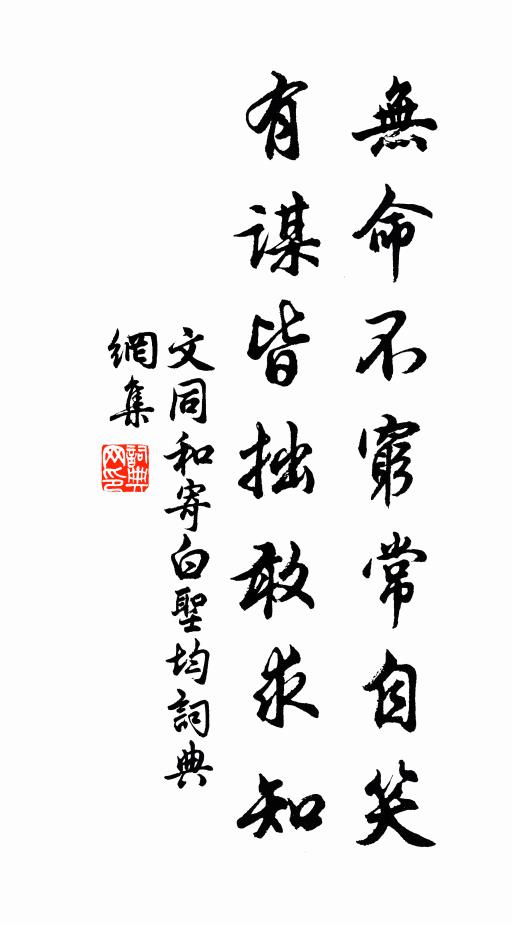 無命不窮常自笑
有謀皆拙敢求知
文同和寄白聖均詞典
網集
詞典
网印